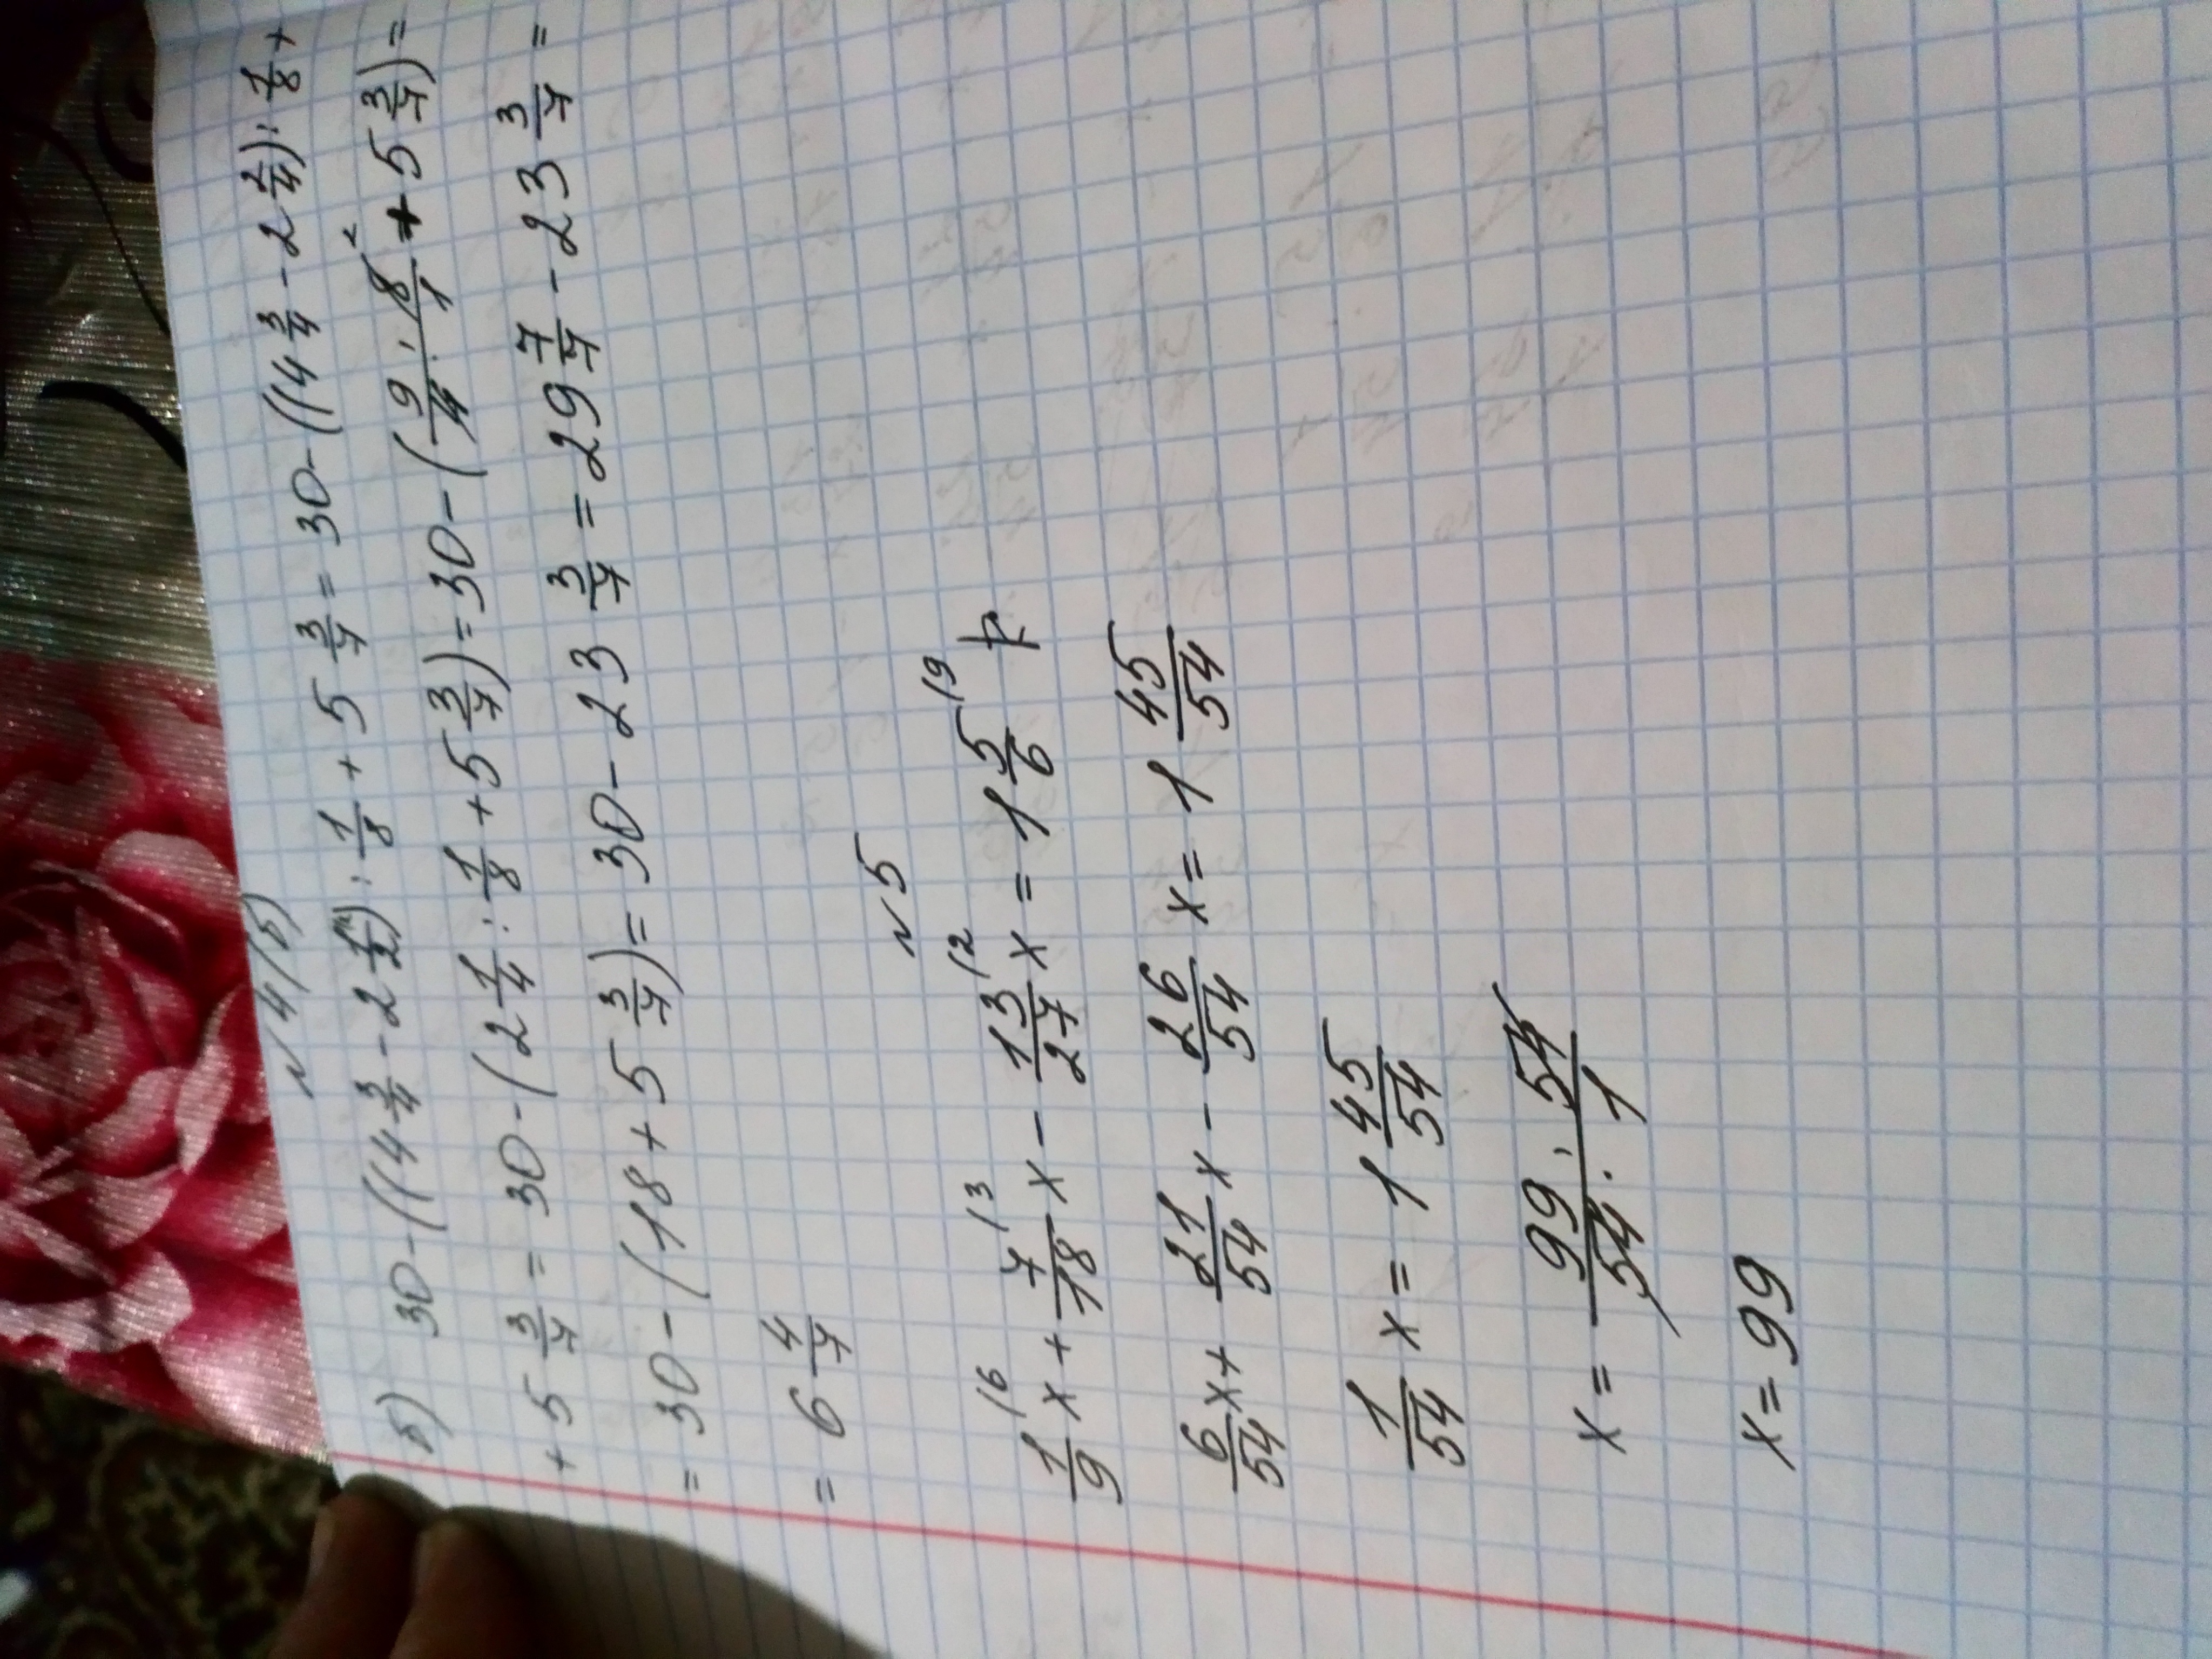 N 4 (б)
б) 30 - ((4 3/4 - 2 1/2 /2) : 1/8 + 5 3/7 = 30 - ((4 3/4 - 2 2/4) : 1/8 +
+ 5 3/7 = 30 - (2 1/4 : 1/8 + 5 3/7) = 30 - (9/4 · 8/1 2 + 5 3/7) =
= 30 - (18 + 5 3/7) = 30 - 23 3/7 = 29 7/7 - 23 3/7 =
= 6 4/7
N 5
1/9 /6 x + 7/18 /3 x - 13/27 /2 x = 1 5/6 /9
6/54 x + 21/54 x - 26/54 x = 1 45/54
1/54 x = 1 45/54
x = 99 · 54/54 · 1
x = 99